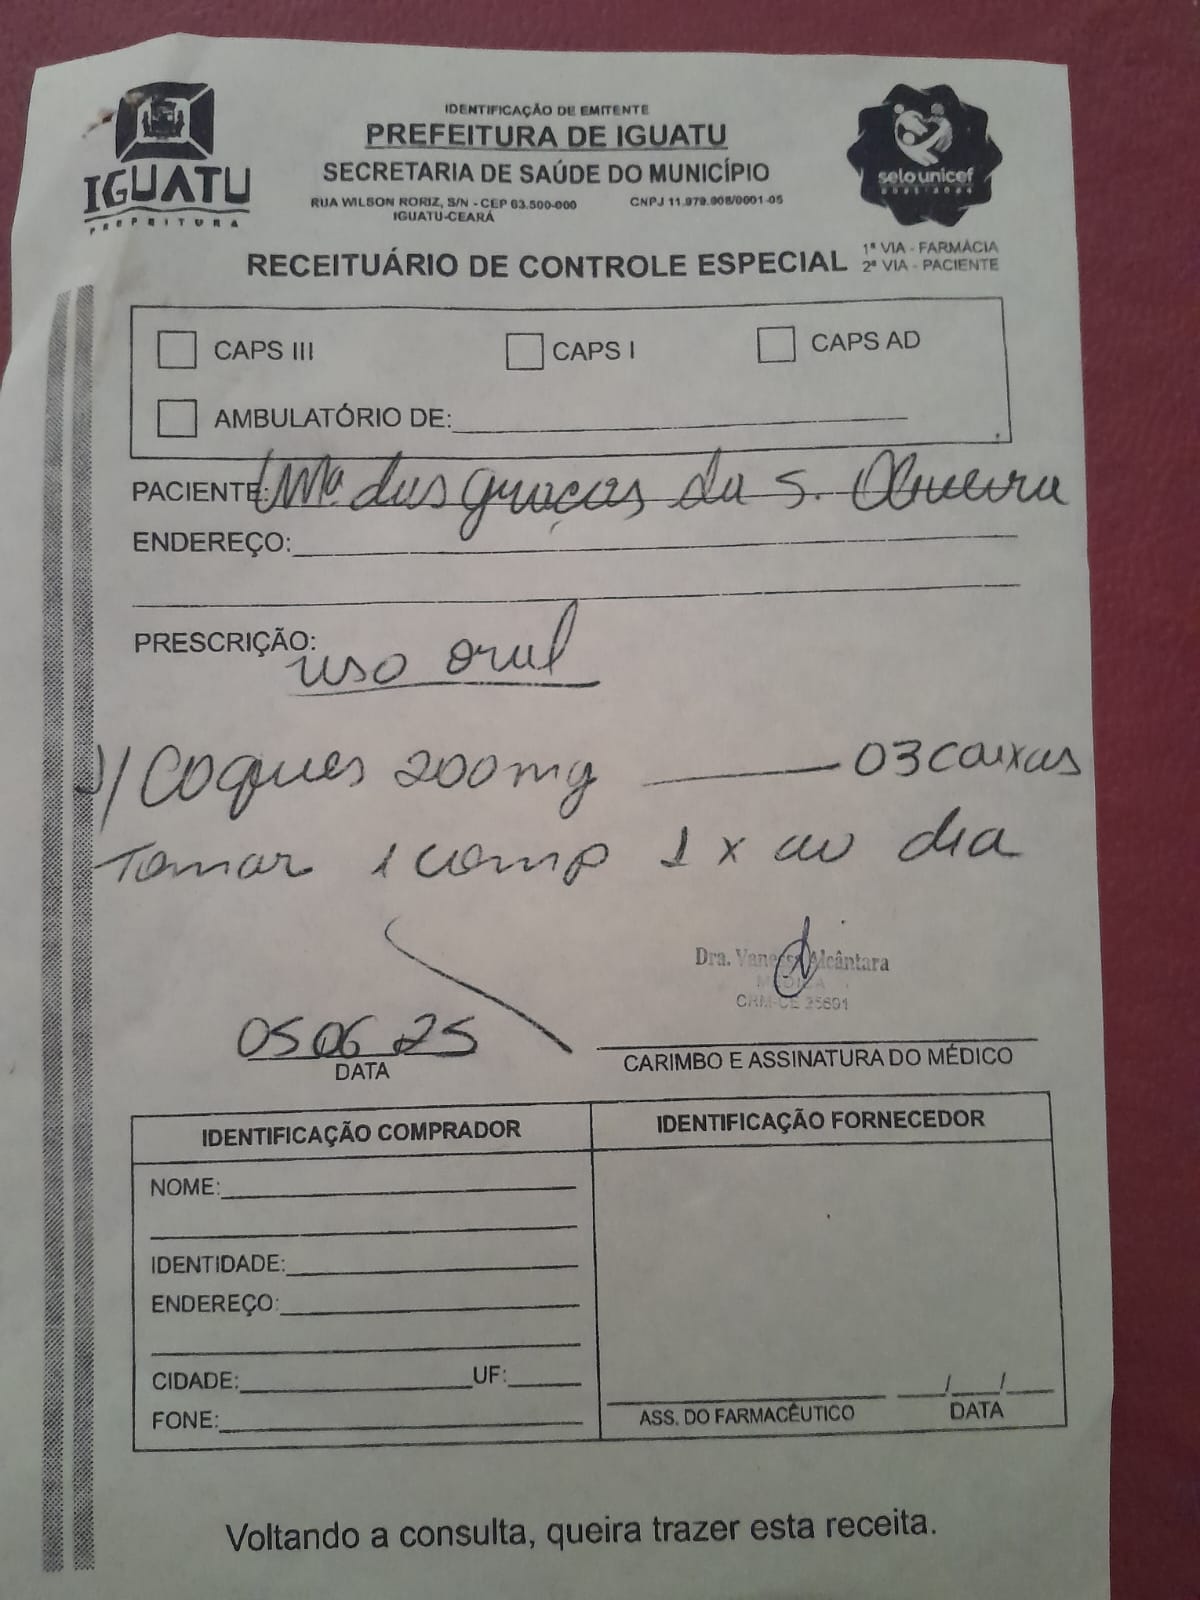 IGUATU
PREFEITURA
IDENTIFICAÇÃO DE EMITENTE
PREFEITURA DE IGUATU
SECRETARIA DE SAÚDE DO MUNICÍPIO
RUA WILSON RORIZ, S/N - CEP 63.500-000 CNPJ 11.979.908/0001-05
IGUATU-CEARÁ
selo unicef
RECEITUÁRIO DE CONTROLE ESPECIAL
1ª VIA - FARMÁCIA
2ª VIA - PACIENTE
CAPS III CAPS I CAPS AD
AMBULATÓRIO DE:
PACIENTE: Mª das graças da S. Oliveira
ENDEREÇO:
PRESCRIÇÃO:
uso oral
1/ Coques 200mg 03 caixas
Tomar 1 comp 1 x ao dia
Dra. Vanessa Alcântara
MÉDICA
CRM-CE 25691
05 06 25
DATA
CARIMBO E ASSINATURA DO MÉDICO
IDENTIFICAÇÃO COMPRADOR
NOME:
IDENTIDADE:
ENDEREÇO:
CIDADE: UF:
FONE:
IDENTIFICAÇÃO FORNECEDOR
/ /
ASS. DO FARMACÊUTICO DATA
Voltando a consulta, queira trazer esta receita.